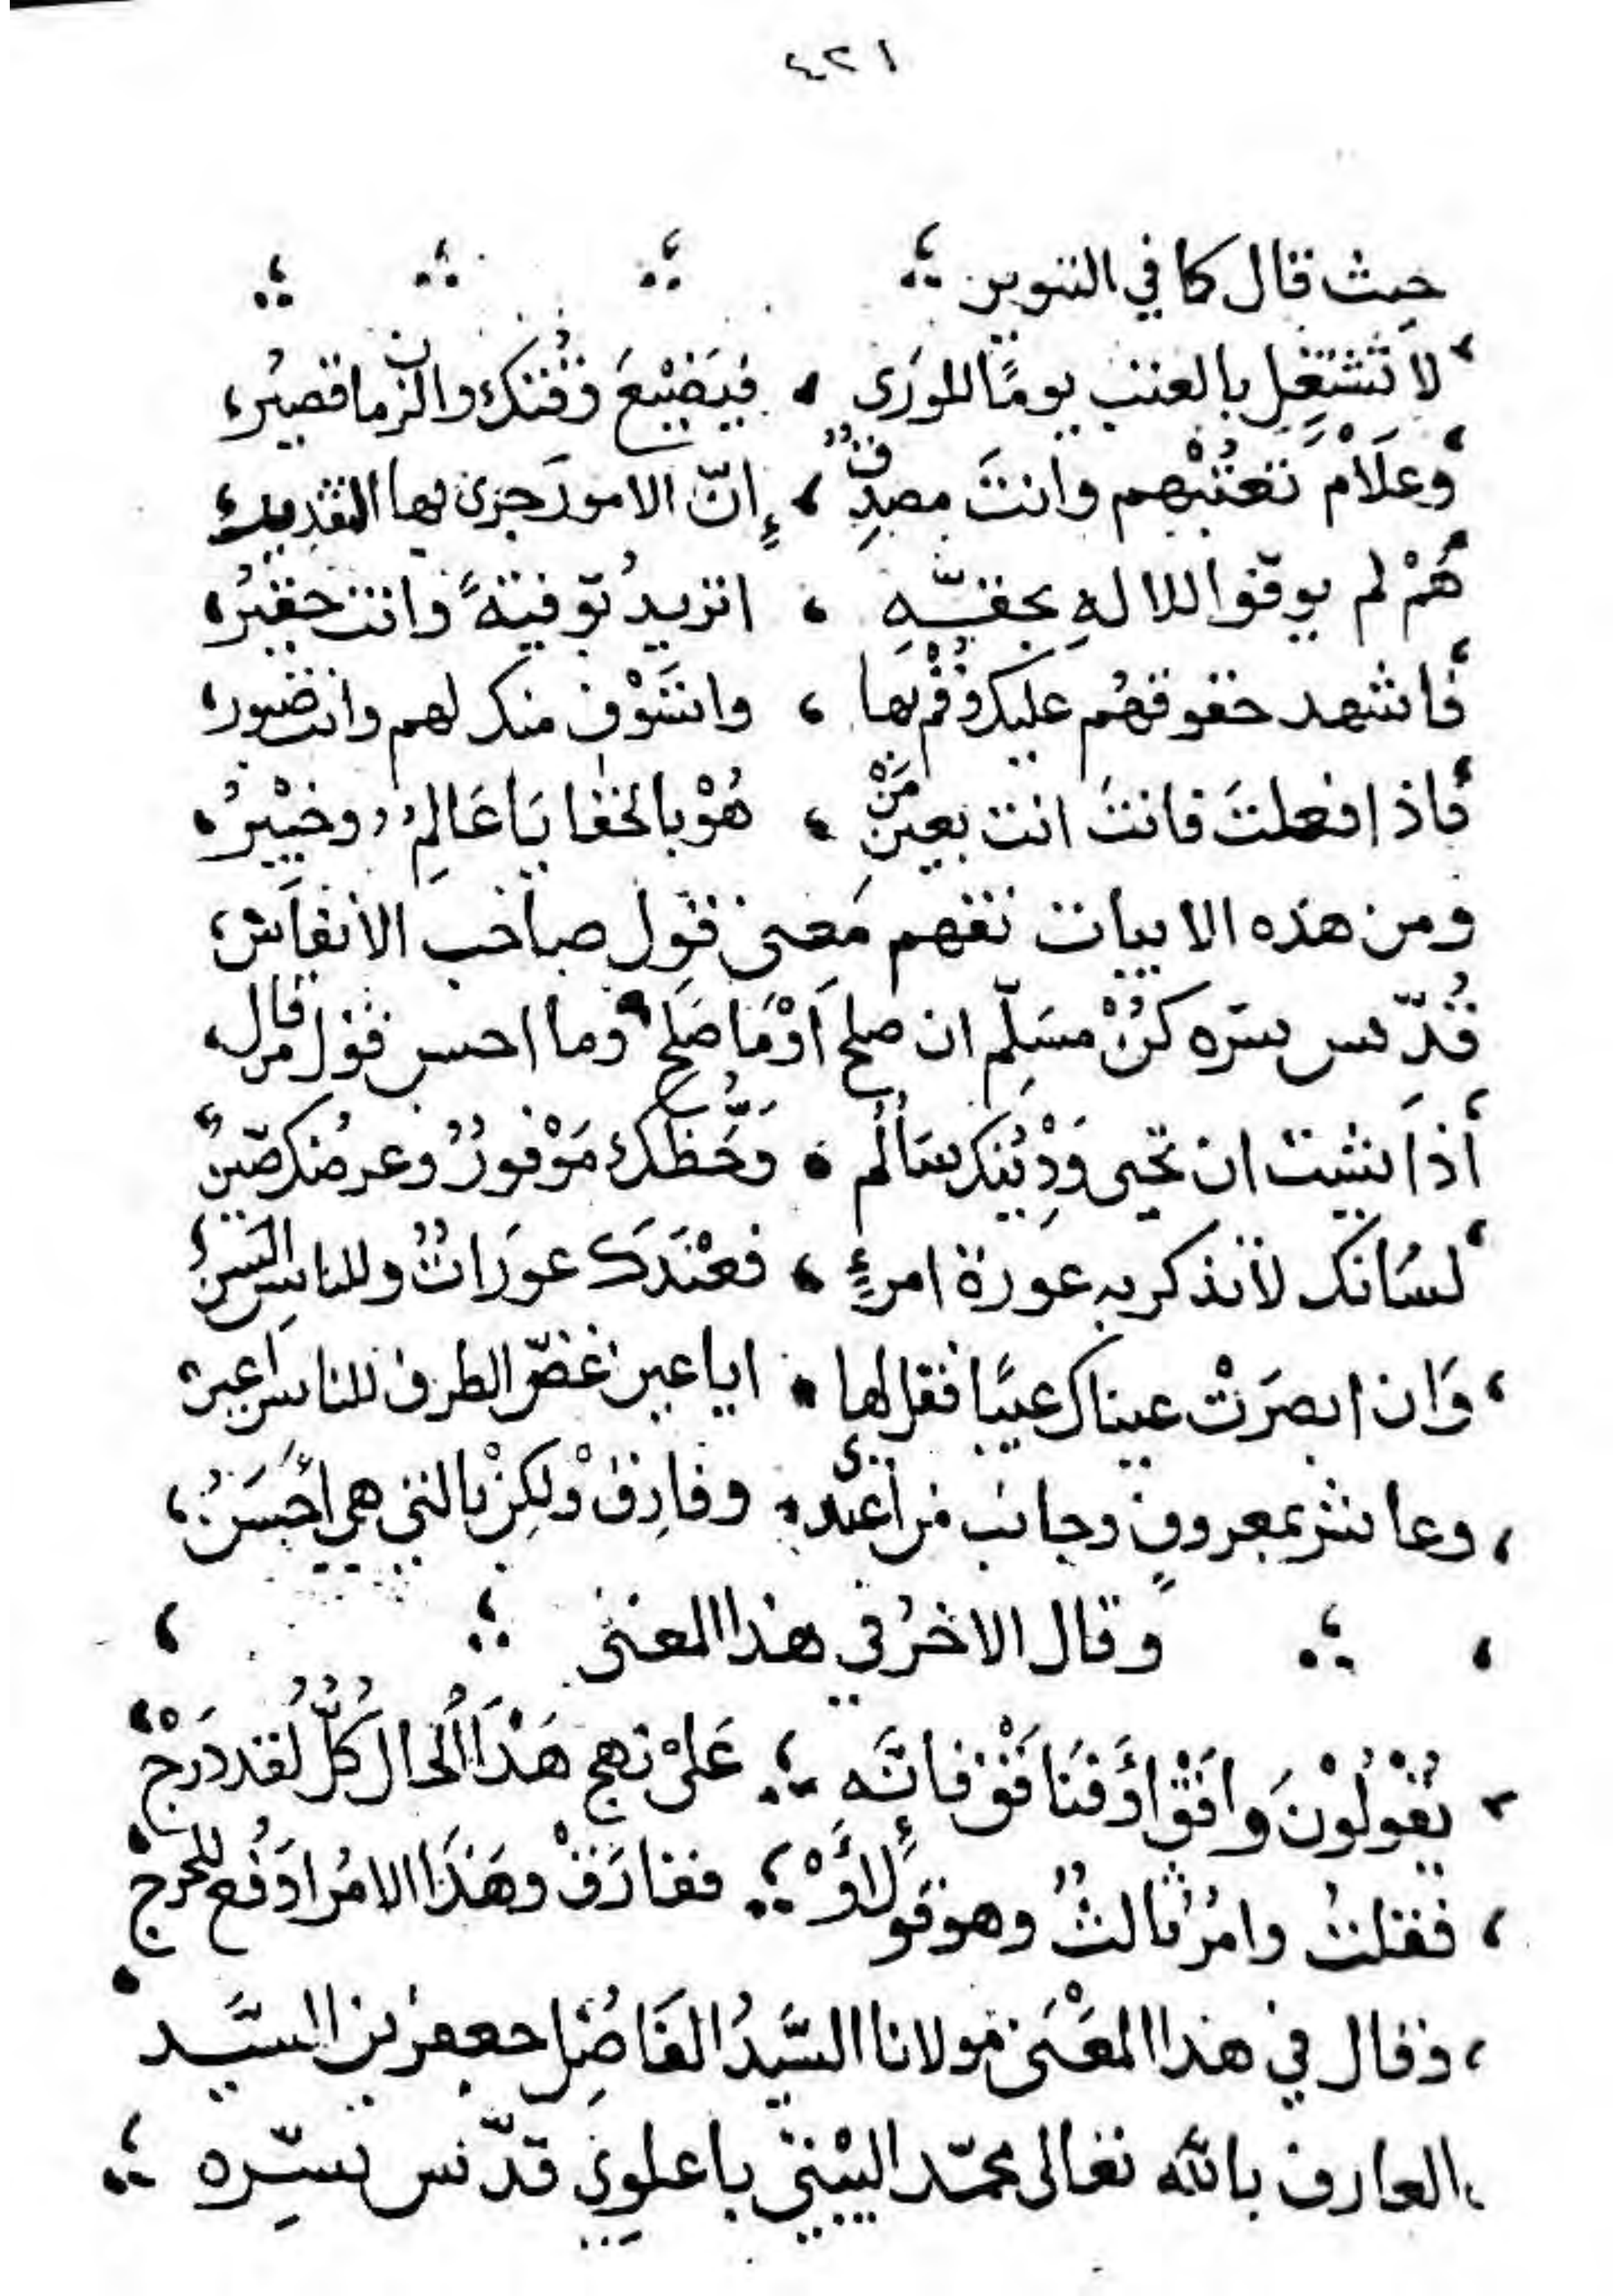 ٤٢١
حيث قال كما في التنوير
لا تَشتغِل بالعتب يومًا للورَى ، فيَضيْعَ وقْتك والزمان قصيرُ
وعلَامْ تعتُبْهم وانتَ مصدِّقٌ ، إنّ الامورَ جرى بها التقدير
هُمْ لم يوفّوا للالهِ بحقّهِ ، اتريدُ توفيةً وانت حقيرُ
فاشهد حقوقهُم عليك وقُمْ بها ، واستَوْفِ منك لهم وانت صبور
فاذا فعلتَ فانتَ انت بعينِ مَنْ ، هُوْ بالخفايَا عَالمٌ وخبيْرُ
ومن هذه الابيات تفهم مَعنى قول صاحب الانفاس
قُدّس سرّه كُنْ مسَلِّم ان صلح اَوْ مَا صَلح وما احسن قول من قال
اذا شئت ان تحيى وَدِيْنك سَالُم ، وَحَظّك مَوْفورٌ وعرضُك صَيّنٌ
لسَانك لا تذكر به عورة امرءٍ ، فعنْدَكَ عورَاتٌ وللناسِ السنُ
وَان ابصرَتْ عيناك عيبًا فقل لها ، ايا عين غضّى الطرف للناس اعين
وعاشر بمعروفٍ وجانب من اعتدى ، وفارِقْ ولكِنْ بالتي هي اَحْسَنُ
وقال الاخرُ في هذا المعنى
يقُوْلُوْنَ وافَقْ اَوْ فنَافَقْ فإنَّه عَلى نهج هَذَا الحال كُلٌّ لقد دَرَجْ
فقلتُ وامرٌ ثالثٌ وهو قول اَوْ ففارَقْ وهَذا الامرُ ادفُع للحرج
وقال في هذا المعْنَى مولانا السَّيدُ الفَاضِل جعفر بن السَّيد
العارف بالله تعالى محمّد البيْتي باعلوي قدّس سِرّه